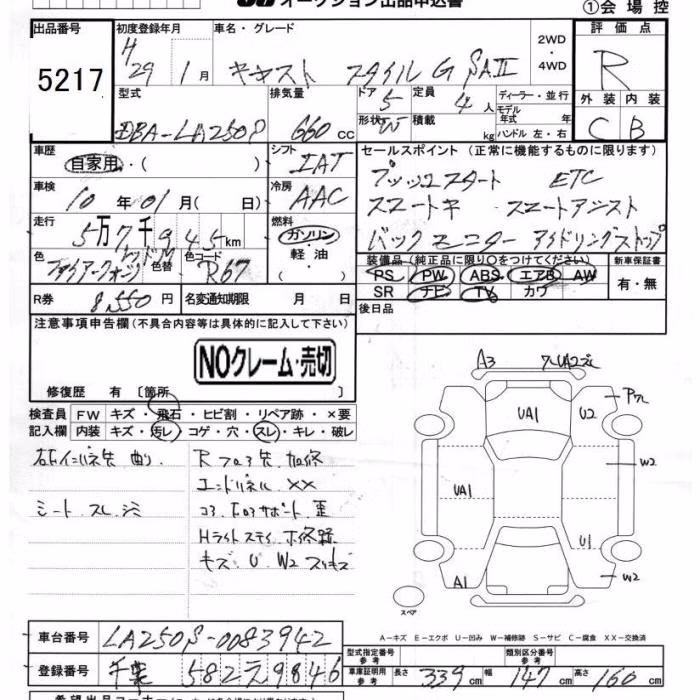 オークション出品申込書
①会場控
出品番号
5217
初度登録年月
H 29 1月
車名・グレード
キャスト スタイル G SAⅡ
2WD
・
4WD
評価点
R
外装 内装
C B
型式
DBA-LA250S
排気量
660 cc
ドア 5
定員 4人
形状 W
積載 kg
ディーラー・並行
モデル年式 年
ハンドル 左・右
車歴
自家用・( )
シフト
IAT
セールスポイント (正常に機能するものに限ります)
プッシュスタート ETC
スマートキー スマートアシスト
バックモニター アイドリングストップ
車検
10年01月( 日)
冷房
AAC
走行
5万7千945km
燃料
ガソリン
・
軽油
( )
色
ファイアークォーツレッドM
色替
色コード
R67
装備品(純正品に限り○をつけてください)
PS PW ABS エアB AW
SR ナビ TV カワ
新車保証書
有・無
R券
8,550円
名変通知期限 月 日
後日品
注意事項申告欄(不具合内容等は具体的に記入して下さい)
NOクレーム・売切
修復歴 有〔箇所 〕
検査員
記入欄
FW キズ・飛石・ヒビ割・リペア跡・×要
内装 キズ・汚レ・コゲ・穴・スレ・キレ・破レ
右インパネ先 曲り
シート スレ シミ
R フロア先 加修
エンドパネル XX
コアロアサポート 歪
Hライトステイ 补修跡
キズ U W2 スリキズ
A3
UA1
U2
W2
UA1
U1
A1
W2
スペア
A-キズ E-エクボ U-凹み W-補修跡 S-サビ C-腐食 XX-交換済
車台番号
LA250S-0083942
登録番号
千葉 582 え 9846
型式指定番号
参考
類別区分番号
参考
車庫証明用
参考
長さ 339cm 幅 147cm 高さ 160cm